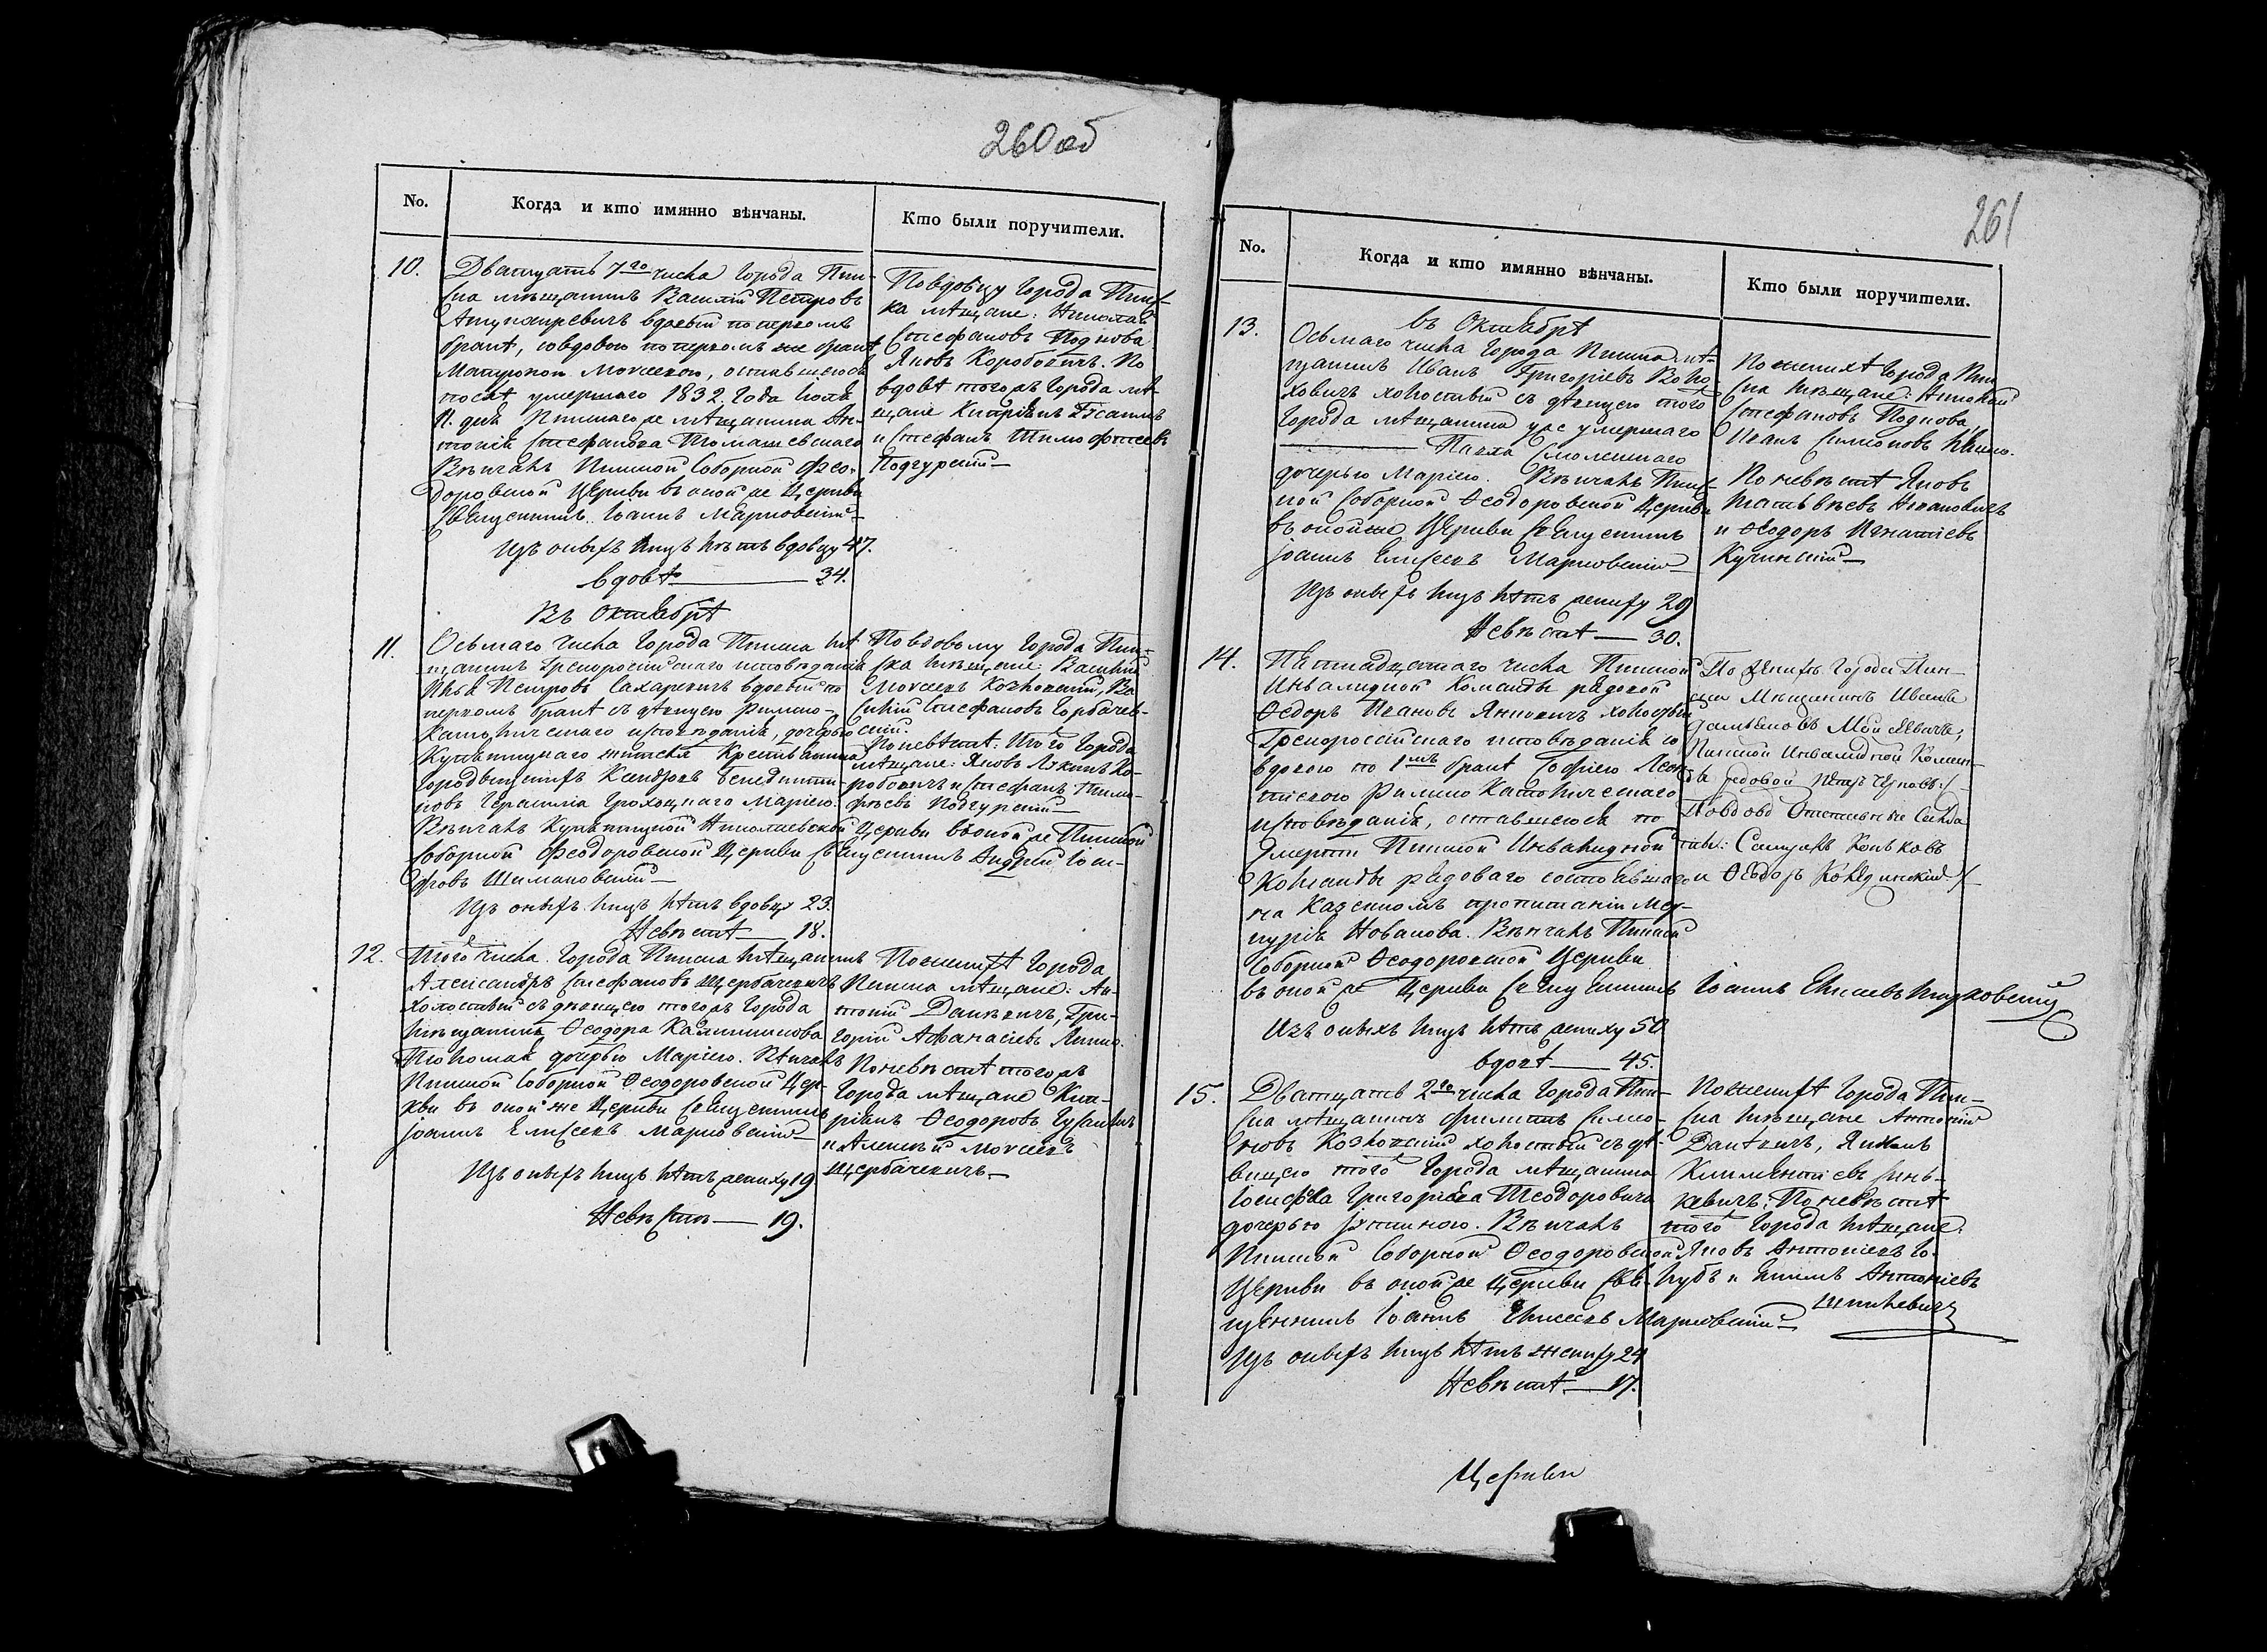 260 об
No.
Когда и кто имянно вѣнчаны.
Кто были поручители.
10.
Дватцать 7го числа Города Пин-
ска мѣщанинъ Василій Петровъ
вдовый по первомъ
бракѣ, со вдовою по первомъ же бракѣ
Моисеевою, оставшеюся
послѣ умершаго 1832. Года Іюля
11. дня Пинскаго же мѣщанина Ан-
тонія Стефанова Томашевскаго
Вѣнчалъ Пинской Соборной Фео-
доровской Церкви въ оной же Церкви
Священникъ Іоаннъ Марковскій
Изъ оныхъ лицъ лѣтъ вдовцу 47.
вдовѣ 34.
По вдовцу Города Пинс-
ка мѣщане: Николай
Стефановъ Поднова
Яковъ Коробовичъ. По
вдовѣ тогожъ Города мѣ-
щане Кипріянъ
и Стефанъ Тимофѣевъ
Подгурскій
Въ Октябрѣ
11.
Осьмаго числа Города Пинска мѣ-
щанинъ Грекороссійскаго исповѣданія
Илья Петровъ Сахаревичъ вдовый по
первомъ бракѣ съ дѣвицею Римско-
Католическаго исповѣданія, дочерью
Купятицкаго
Маріею.
Вѣнчалъ Купятицкой Николаевской Церкви въ оной же Пинской
Соборной Феодоровской Церкви Священникъ Андрей Іоси-
фовъ Шимановскій
Изъ оныхъ лицъ лѣтъ вдовцу 23.
Невѣстѣ 18.
По вдовому Города Пин-
ска мѣщане: Василій
Моисеевъ Козловскій, Ва-
силій Стефановъ Горбачев-
скій.
По невѣстѣ: того Города
мѣщане: Яковъ Ко-
робовичъ и Стефанъ Тимо-
фѣевъ Подгурскій
12.
Того числа Города Пинска мѣщанинъ
Александръ Стефановъ Щербачевичъ
холостый съ дѣвицею тогожъ Города
мѣщанина Феодора Калинникова
дочерью Маріею. Вѣнчалъ
Пинской Соборной Феодоровской Цер-
кви въ оной же Церкви Священникъ
Іоаннъ Елисеевъ Марковскій
Изъ оныхъ лицъ лѣтъ жениху 19
Невѣстѣ 19.
По женихѣ Города
Пинска мѣщане: Ан-
тоній Данкевичъ, Гри-
горій Афанасіевъ
По невѣстѣ тогожъ
Города мѣщане Кип-
ріянъ Феодоровъ
и Алексѣй Моисеевъ
Щербачевичъ.
261
No.
Когда и кто имянно вѣнчаны.
Кто были поручители.
въ Октябрѣ
13.
Осьмаго числа Города Пинска мѣ-
щанинъ Иванъ Григоріевъ Воло-
ховичъ холостый съ дѣвицею того
Города мѣщанина уже умершаго
Павла Смоленскаго
дочерью Маріею. Вѣнчалъ Пинс-
кой Соборной Феодоровской Церкви
въ оной же Церкви Священникъ
Іоаннъ Елисеевъ Марковскій
Изъ оныхъ лицъ лѣтъ жениху 29
Невѣстѣ 30.
По женихѣ Города Пин-
ска мѣщане: Николай
Стефановъ Поднова
Иванъ Симоновъ
По невѣстѣ Яковъ
Матвѣевъ
и Феодоръ Игнатіевъ
Кучинскій
14.
Пятнадцатаго числа Пинской
Инвалидной Команды рядовой
Федоръ Ивановъ Янковичъ холостый
Грекороссійскаго исповѣданія со
вдовою по 1мъ бракѣ Софіею
Римско Католическаго
исповѣданія, оставшеюся по
смерти Пинской Инвалидной
Команды рядоваго состоявшаго
на Казенномъ пропитаніи Мер-
курія Новакова. Вѣнчалъ Пинской
Соборной Феодоровской Церкви
въ оной же Церкви Священникъ Іоаннъ Елисеевъ Марковскій
Изъ оныхъ лицъ лѣтъ жениху 50
вдовѣ 45.
По женихѣ Города Пин-
ска Мѣщанинъ
Пинской Инвалидной Коман-
ды рядовой Петръ
По вдовѣ Отставные Солда-
ты:
и Федоръ
15.
Дватцать 2го числа Города Пин-
ска мѣщанинъ Филиппъ Симо-
новъ Козловскій холостый съ дѣ-
вицею того Города мѣщанина
Іосифа Григоріева Теодоровича
дочерью Іустиною. Вѣнчалъ
Пинской Соборной Феодоровской
Церкви въ оной же Церкви Свя-
щенникъ Іоаннъ Елисеевъ Марковскій
Изъ оныхъ лицъ лѣтъ жениху 24
Невѣстѣ 17.
По женихѣ Города Пин-
ска мѣщане Антоній
Данкевичъ, Якимъ
Климентіевъ Синь-
кевичъ: По невѣстѣ
того Города мѣщане:
Яковъ Антоніевъ Го-
лубъ и Антоніевъ
Шпилевичъ
Церкви